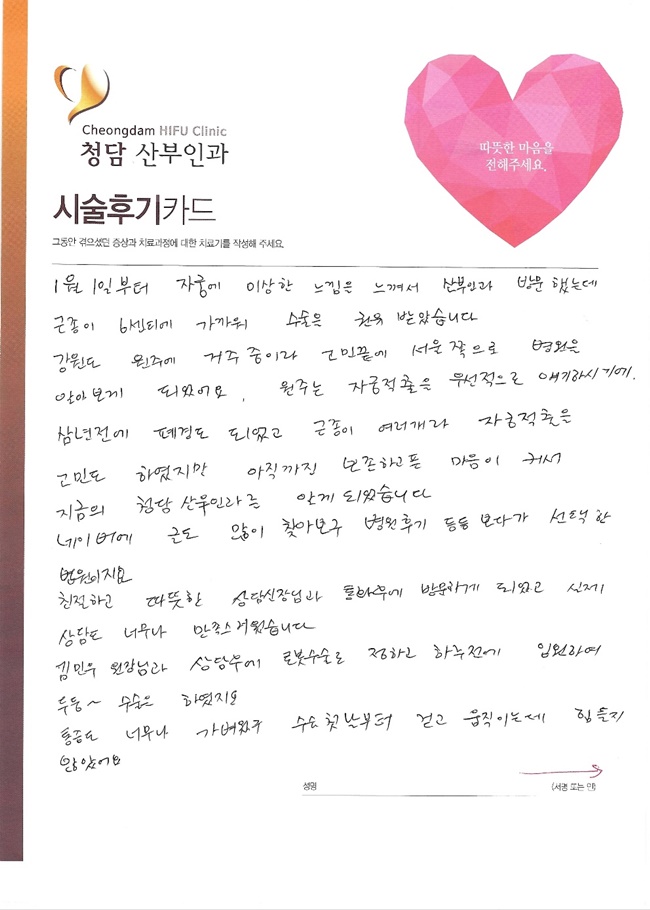 Cheongdam HIFU Clinic
청담 산부인과
따뜻한 마음을
전해주세요.
시술후기카드
그동안 겪으셨던 증상과 치료과정에 대한 치료기를 작성해 주세요.
1월 1일부터 자궁에 이상한 느낌은 느껴서 산부인과 방문했는데
근종이 6센티에 가까워 수술은 권유 받았습니다
강원도 원주에 거주 중이라 고민끝에 서울쪽으로 병원은
알아보게 되었어요. 원주는 자궁적출을 우선적으로 얘기하시기에.
참년전에 폐경도 되었고 근종이 여러개라 자궁적출은
고민도 하였지만 아직까진 보존하고픈 마음이 커서
지금의 청담산부인과는 알게되었습니다
네이버에 글도 많이 찾아보구 병원후기 등등 보다가 선택한
병원이지요
친절하고 따뜻한 상담실장님과 통화후에 방문하게 되었고 실제
상담도 너무나 만족스러웠습니다
김민우 원장님과 상담후에 로봇수술로 정하고 하루전에 입원하여
두둥~ 수술은 하였지요
통증도 너무나 가벼웠구 수술첫날부터 걷고 움직이는데 힘들지
않았어요
성명
(서명 또는 인)